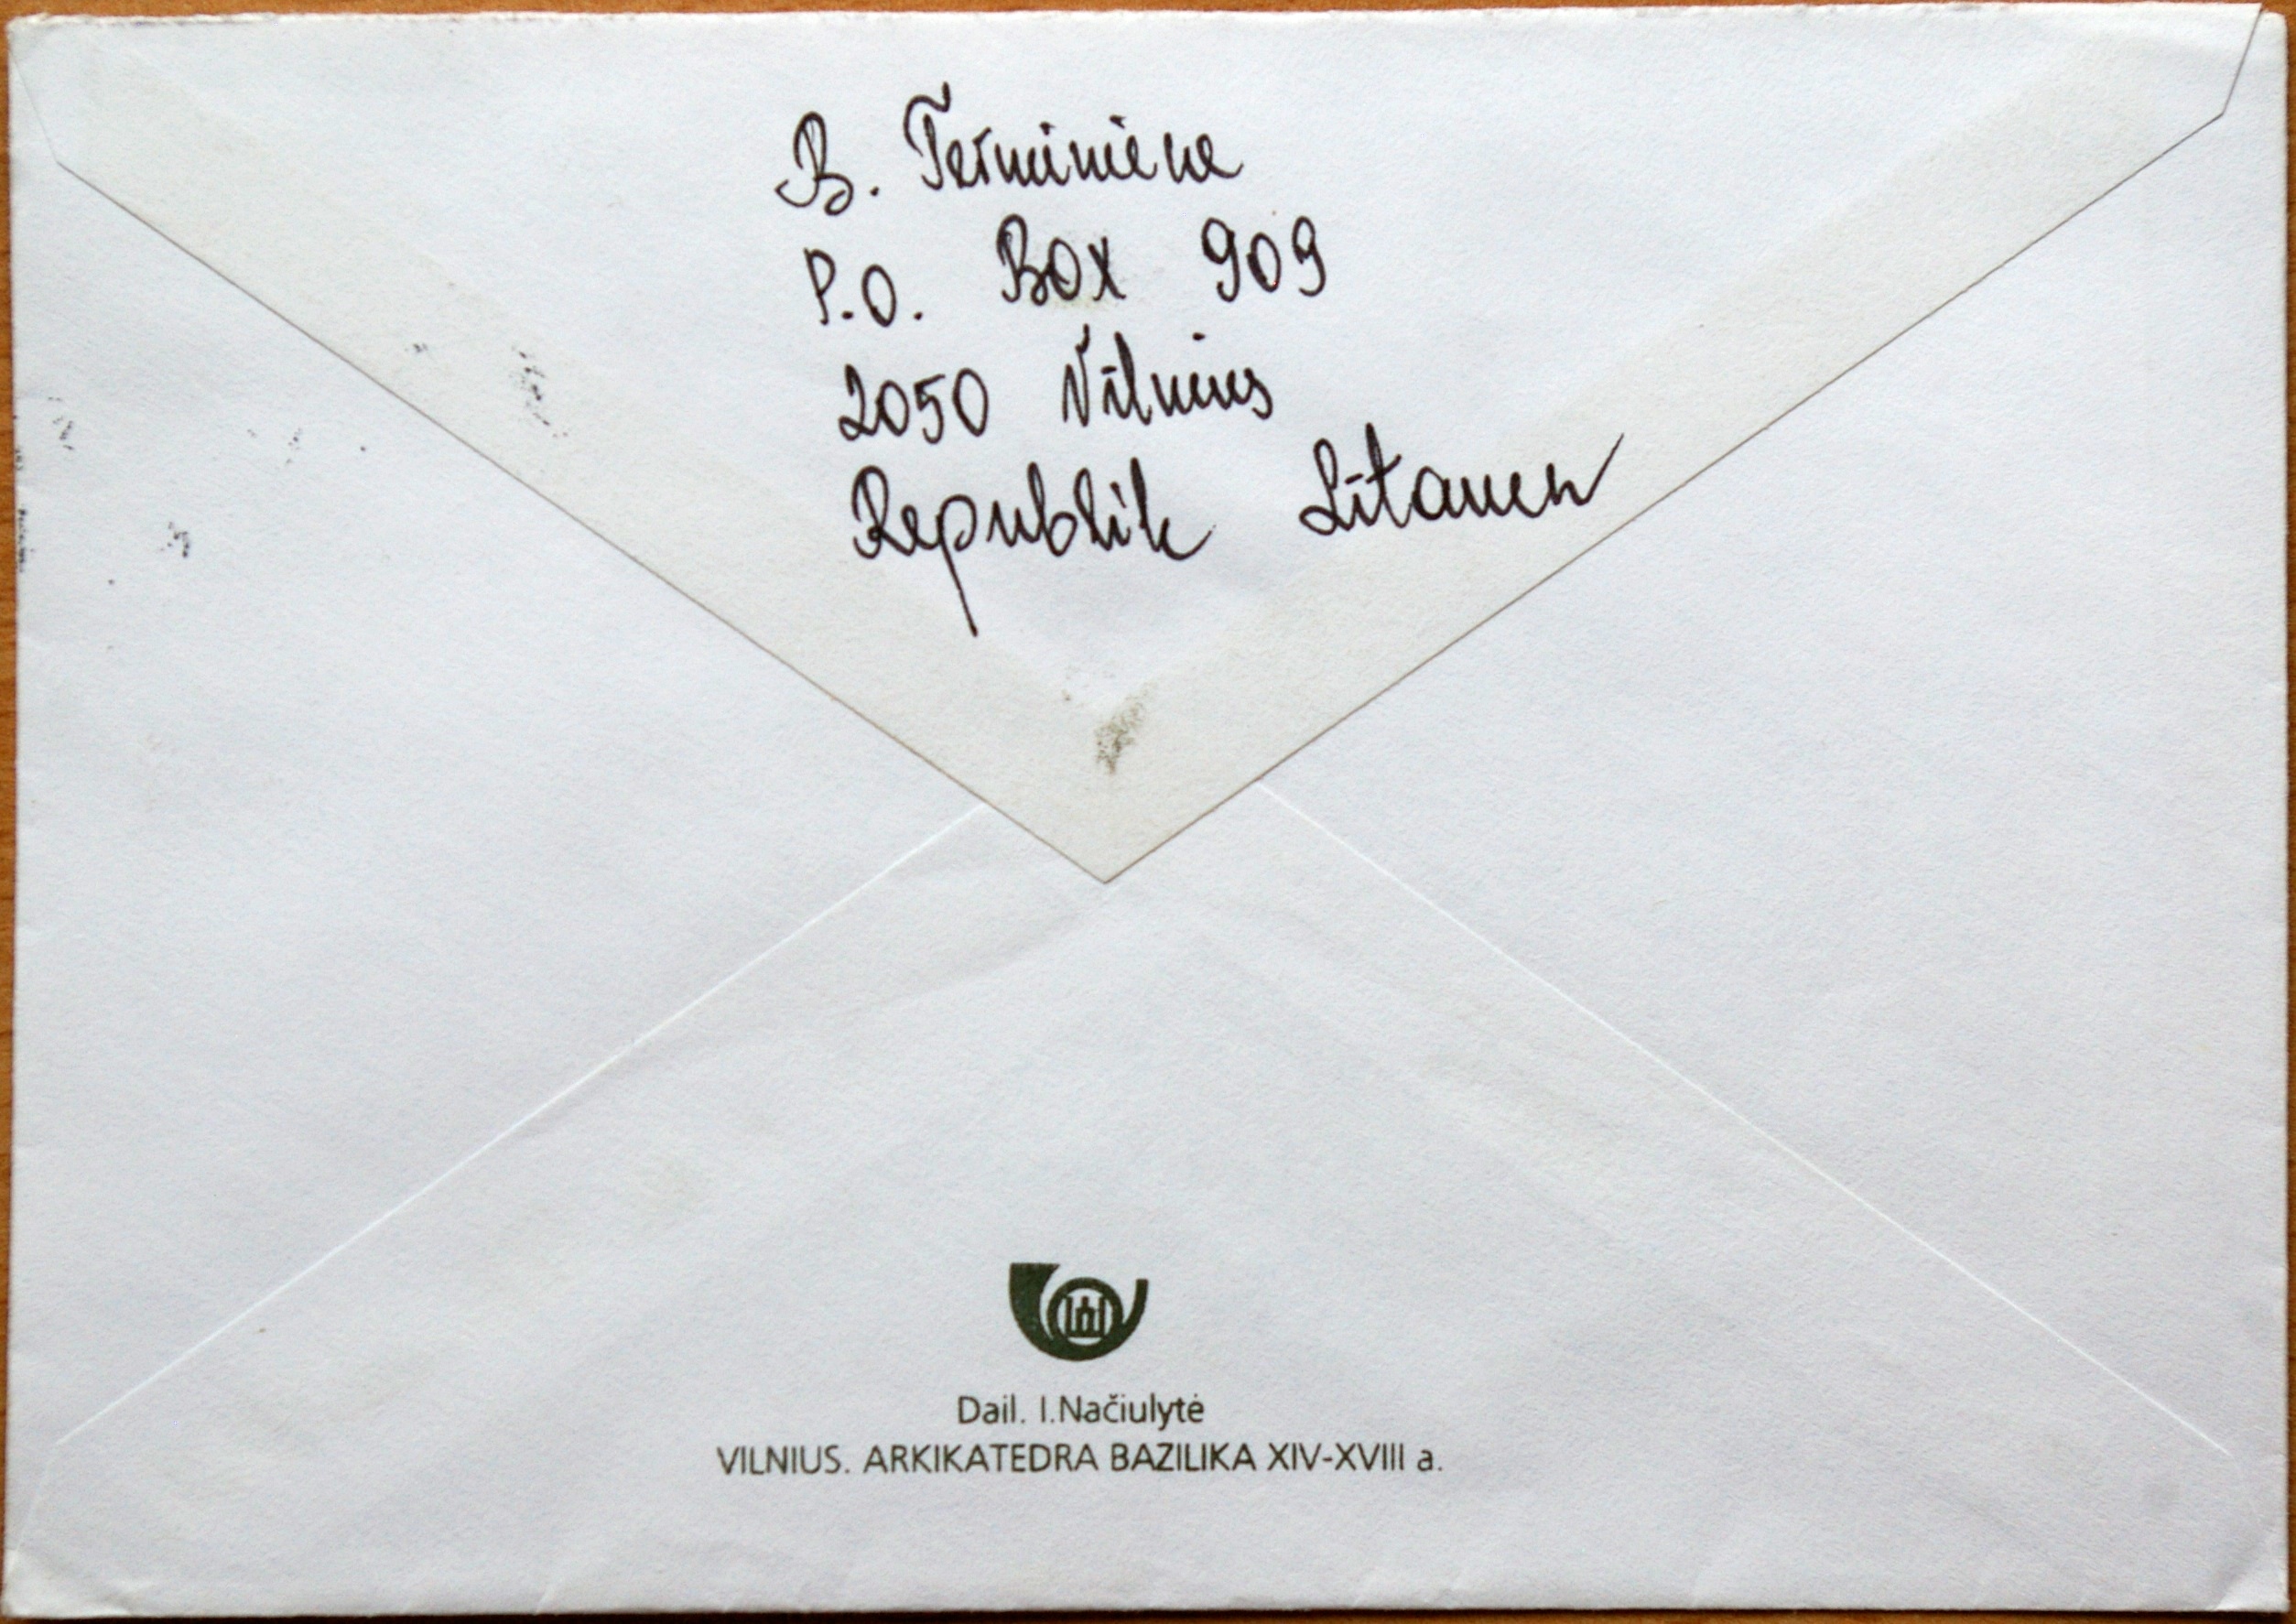 B. Terminiene
P.O. Box 909
2050 Vilnius
Republik Litauen
Dail. I.Načiulytė
VILNIUS. ARKIKATEDRA BAZILIKA XIV-XVIII a.